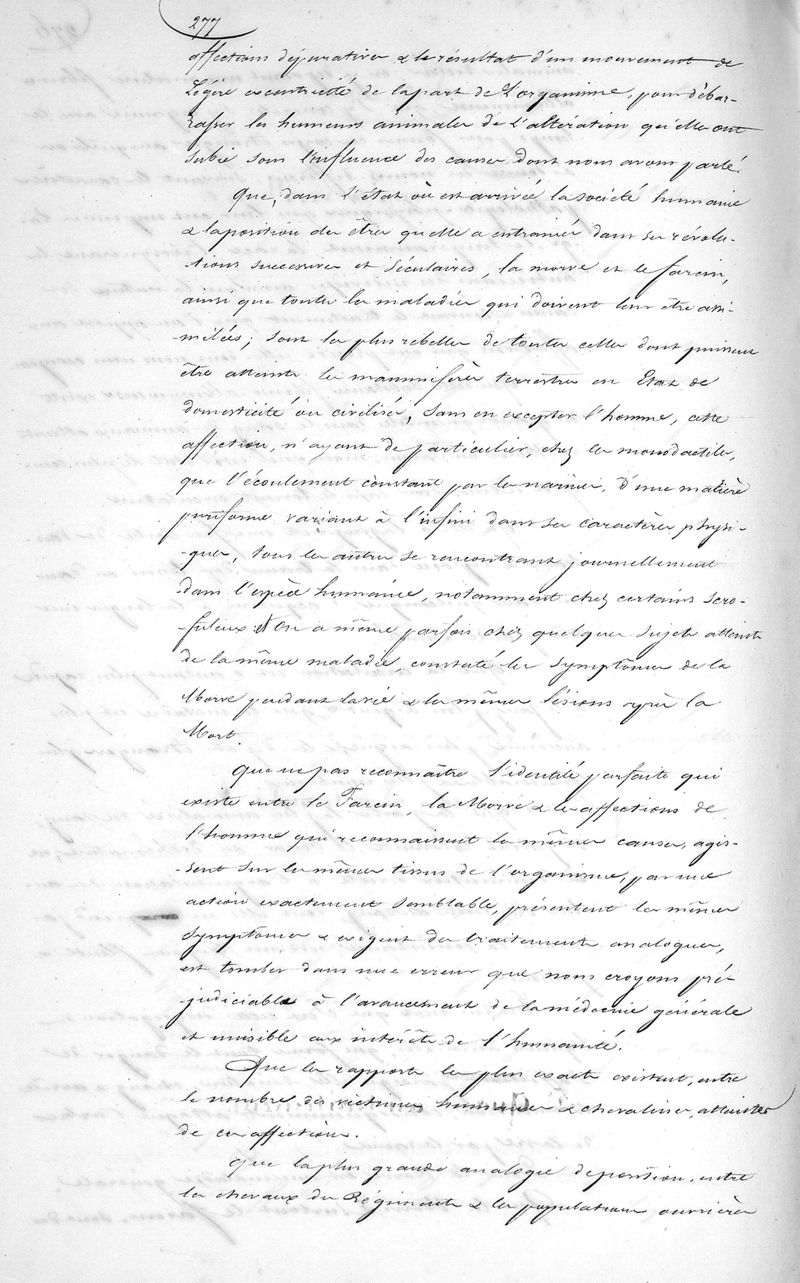 277
affections dépuratives & le résultat d'un mouvement de
Légère excentricité de la part de L'organisme, pour débar-
rasser les humeurs animales de L'altération qu'elles ont
subie sous l'influence des causes dont nous avons parlé.
Que, dans l'état où est arrivée la société humaine
& la position des êtres qu'elle a entrainés dans ses révolu-
tions successives et séculaires, la morve et le farcin,
ainsi que toutes les maladies qui doivent leur être assi-
-milées; sont les plus rebelles de toutes celles dont puissent
être atteints les mammifères terrestres en Etat de
domesticité ou civilisés, sans en excepter l'homme, cette
affection, n'ayant de particulier, chez les monodactiles,
que l'écoulement constant par les narines, d'une matière
puriforme variant à l'infini dans ses caractères physi-
-ques, tous les autres se rencontrant journellement
dans l'espèce humaine, notamment chez certains scro-
-fuleux & On a même parfois chez quelques sujets atteints
de la même maladie, constaté les symptômes de la
Morve pendant la vie & les mêmes lésions après la
Mort.
Que ne pas reconnaître l'identité parfaite qui
existe entre le Farcin, la Morve & les affections de
l'homme qui reconnaissent les mêmes causes, agis-
-sent sur les mêmes tissus de l'organisme, par une
action exactement semblable, présentent les mêmes
symptômes & exigent des traitements analogues,
est tomber dans une erreur que nous croyons pré-
judiciable à l'avancement de la médecine générale
et nuisible aux intérêts de l'humanité.
Que les rapports les plus exacts existent, entre
le nombre des victimes humaines & chevalines, atteintes
de ces affections.
Que la plus grande analogie de position, entre
les chevaux des Régiments & les populations ouvrières